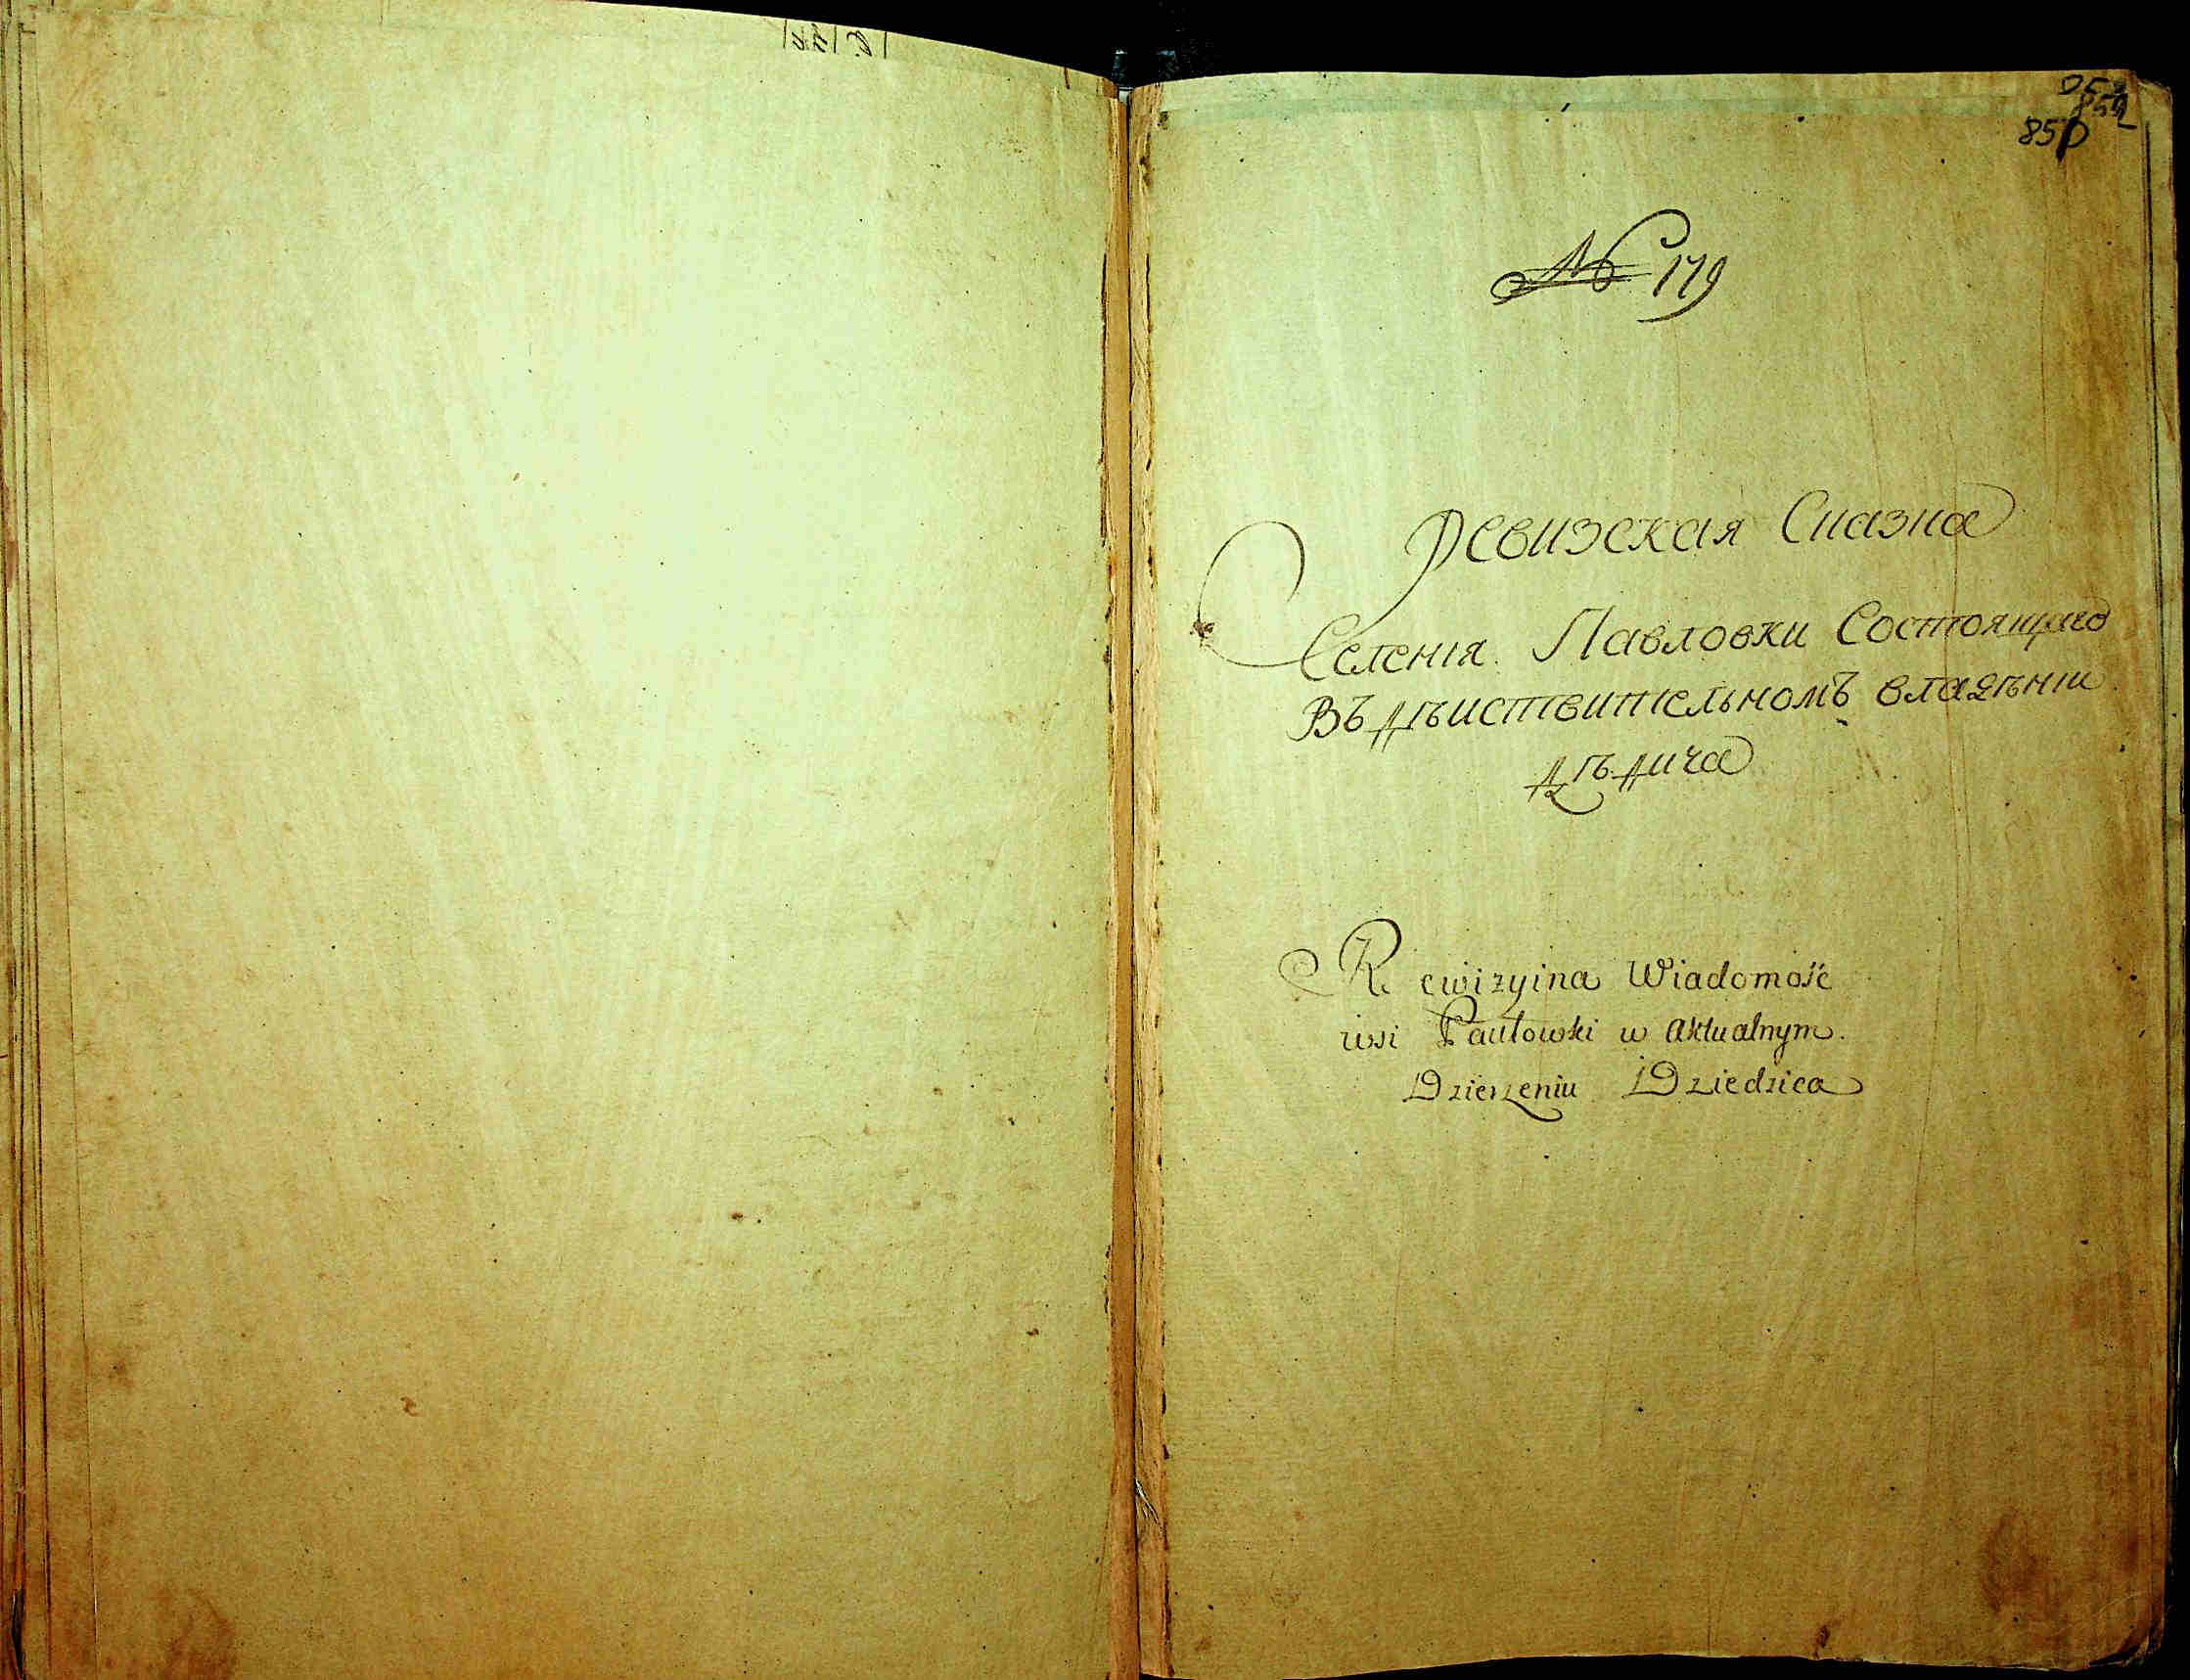 852
850
№ 179
Ревизская Сказка
Селенія Павловки Состоящаго
Въ дѣиствительномъ владѣніи
дѣдича
Rewizyina Wiadomość
wsi Pawłowki w aktualnym.
Dzierżeniu Dziedzica